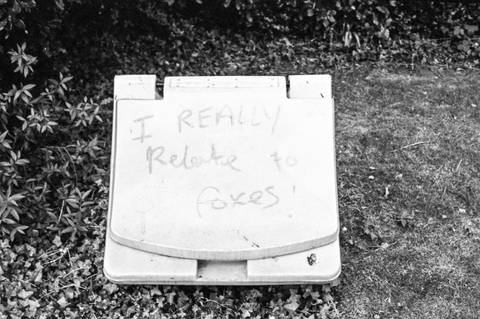 I REALLY
Relate to
foxes!